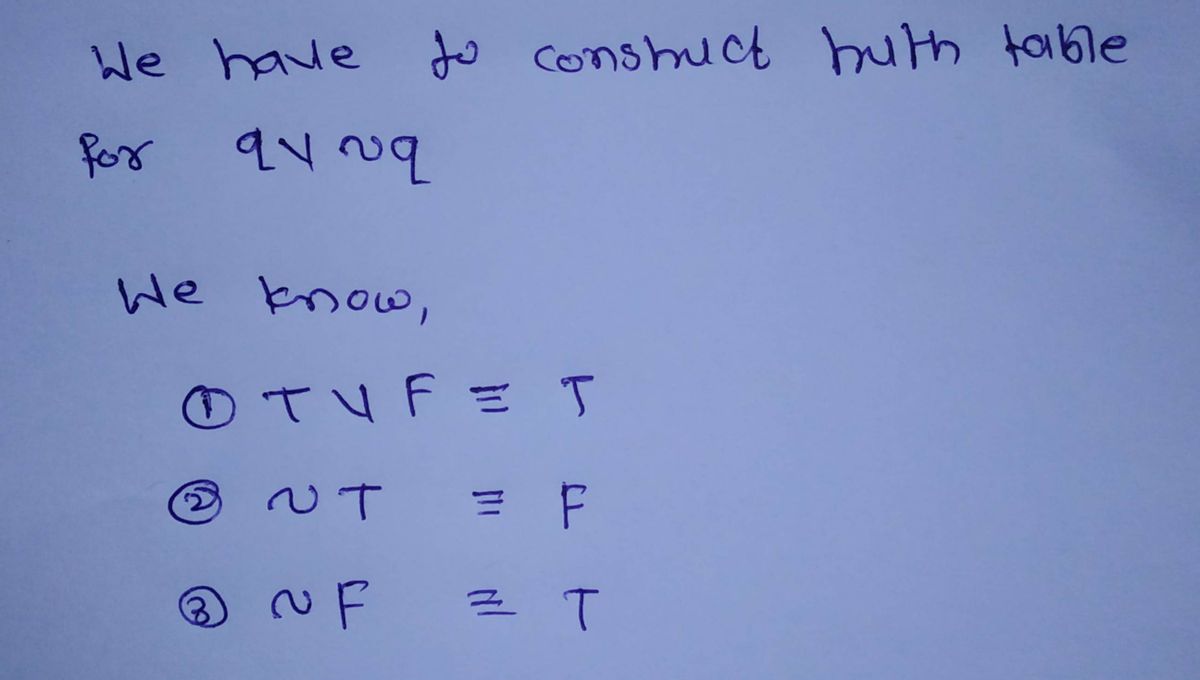 We have to construct truth table
for q ∨ ~q
We know,
① T ∨ F ≡ T
② ~T ≡ F
③ ~F ≡ T